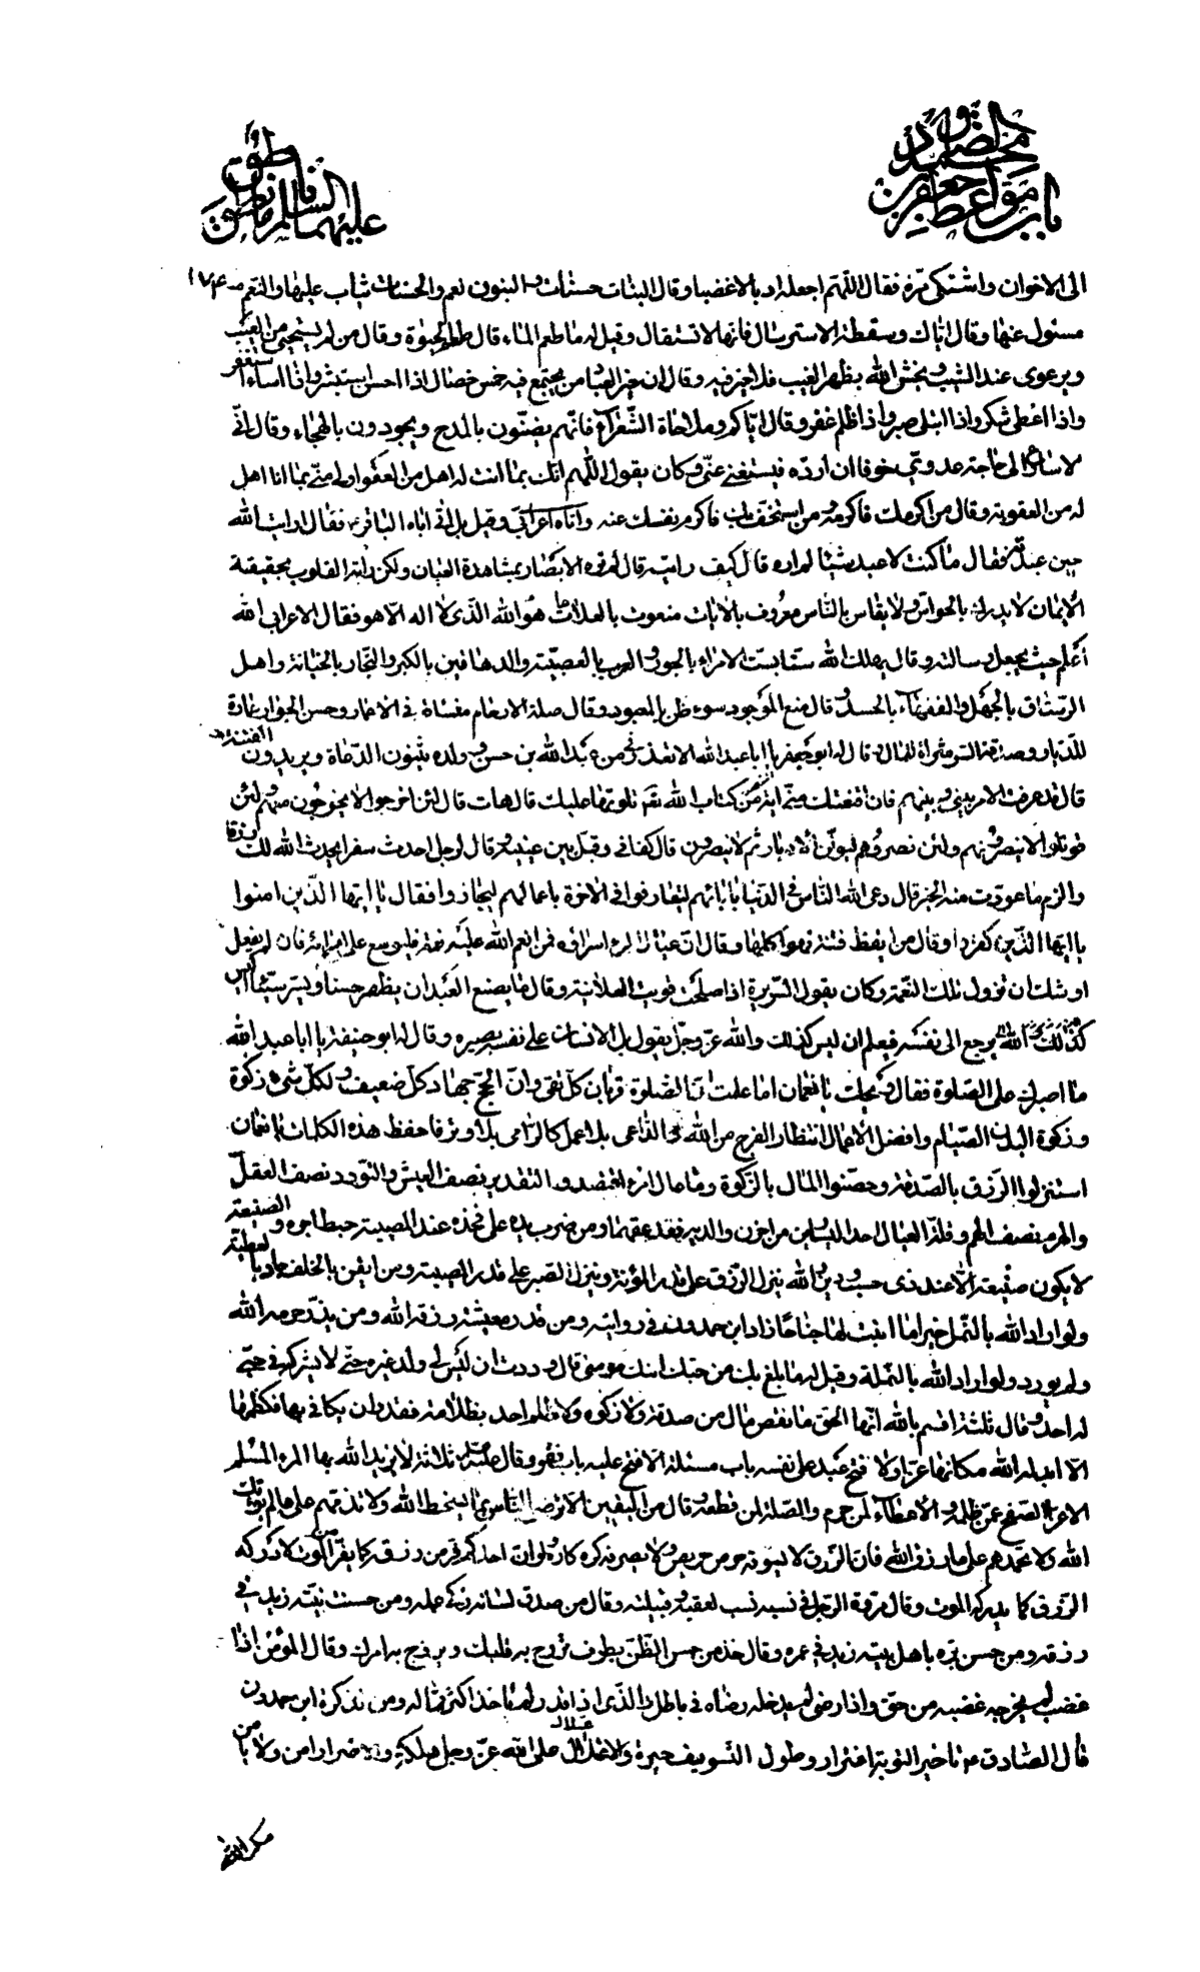 باب مواعظ جعفر بن محمد الصادق
عليهما السلام
١٧٤
الى الاخوان واشتكى مرة فقال اللهم اجعله ادبا لا غضبا وقال البنات حسنات والبنون نعم والحسنات يثاب عليها والنعم
مسئول عنها وقال اياك وسقطة الاسترسال فانها لا تستقال وقيل له ما طعم الماء قال طعم الحيوة وقال من لم يستحيى من العيب
ويرعوى عند الشيب ويخش الله بظهر الغيب فلا خير فيه وقال ان خير العباد من يجتمع فيه خمس خصال اذا احسن استبشر واذا اساء استغفر
واذا اعطى شكر واذا ابتلى صبر واذا ظلم غفر وقال اياكم وملاحاة الشعراء فانهم يضنون بالمدح ويجودون بالهجاء وقال انى
لاسارع الى حاجة عدوى خوفا ان ارده فيستغنى عنى وكان يقول اللهم انك بما انت له اهل من العفو اولى منى بما انا اهل
له من العقوبة وقال من اكرمك فاكرمه ومن استخف بك فاكرم نفسك عنه واتاه اعرابى وقيل بل اتى اباه الباقر فقال ارايت الله
حين عبدته فقال ما كنت لاعبد شيئا لم اره قال كيف رايته قال لم تره الابصار بمشاهدة العيان ولكن راته القلوب بحقيقة
الايمان لا يدرك بالحواس ولا يقاس بالناس معروف بالايات منعوت بالعلامات هو الله الذى لا اله الا هو فقال الاعرابى الله
اعلم حيث يجعل رسالته وقال يهلك الله ستا بست الامراء بالجور والعرب بالعصبية والدهاقين بالكبر والتجار بالخيانة واهل
الرستاق بالجهل والفقهاء بالحسد وقال منع الموجود سوء ظن بالمعبود وقال صلة الارحام منساة فى الاعمار وحسن الجوار عمارة
للديار وصدقة السر مثراة للمال وقال له ابو جعفر يا ابا عبد الله الا تعذرنى من عبد الله بن حسن وولده يبثون الدعاة ويريدون الفتنة
قال قد عرفت الامر بينى وبينهم فان اقنعتك منى اية من كتاب الله تعالى تلوتها عليك قال هات قال لئن اخرجوا لا يخرجون معهم ولئن
قوتلوا لا ينصرونهم ولئن نصروهم ليولن الادبار ثم لا ينصرون قال كفانى وقبل بين عينيه وقال لرجل احدث سفرا يحدث الله لك رزقا
والزم ما عودت منه الخير قال دعى الله الناس فى الدنيا بابائهم ليتعارفوا وفى الاخرة باعمالهم ليجازوا فقال يا ايها الذين امنوا
يا ايها الذين كفروا وقال من ايقظ فتنة فهو اكلها وقال ان عيال المرء اسراؤه فمن انعم الله عليه نعمة فليوسع على اسرائه فان لم يفعل
اوشك ان تزول تلك النعمة وكان يقول السريرة اذا صلحت قويت العلانية وقال ما يصنع العبد ان يظهر حسنا ويسر سيئا اليس
يرجع الى نفسه فيعلم ان ليس كذلك والله عز وجل يقول بل الانسان على نفسه بصيره وقال له ابو حنيفة يا ابا عبد الله
ما اصبرك على الصلوة فقال ويحك يا نعمان اما علمت ان الصلوة قربان كل تقى وان الحج جهاد كل ضعيف ولكل شىء زكوة
وزكوة البدن الصيام وافضل الاعمال انتظار الفرج من الله والداعى بلا عمل كالرامى بلا وتر فاحفظ هذه الكلمات يا نعمان
استنزلوا الرزق بالصدقة وحصنوا المال بالزكوة وما عال امرء اقتصد والتقدير نصف العيش والتودد نصف العقل
والهرم نصف الهم وقلة العيال احد اليسارين من احزن والديه فقد عقهما ومن ضرب يده على فخذه عند المصيبة حبط اجره والصنيعة
لا يكون صنيعة الا عند ذى حسب ودين والله ينزل الرزق على قدر المؤنة وينزل الصبر على قدر المصيبة ومن ايقن بالخلف جاد بالعطية
ولو اراد الله بالنمل خيرا ما انبت لها جناحا زاد ابن حمدون فى روايته ومن قدر معيشته رزقه الله ومن بذر حرمه الله
ولم يورد ولو اراد الله بالنملة وقيل له ما بلغ بك من حبك ابنك موسى قال وددت ان ليس لى ولد غيره حتى لا يشركه فى حبى
له احد وقال ثلثة اقسم بالله انها الحق ما نقص مال من صدقة ولا زكوة ولا ظلم احد بظلامة فقدر ان يكافى بها فكظمها
الا ابدله الله مكانها عزا ولا فتح عبد على نفسه باب مسئلة الا فتح عليه باب فقر وقال ثلاثة لا يزيد الله بها المرء المسلم
الا عزا الصفح عمن ظلمه والاعطاء لمن حرمه والصلة لمن قطعه وقال من اليقين الا ترضى الناس بما يسخط الله ولا تذمهم على ما لم يؤتك
الله ولا تحمدهم على ما رزق الله فان الرزق لا يسوقه حرص حريص ولا يصرفه كره كاره ولو ان احدكم فر من رزقه كما يفر من الموت لادركه
الرزق كما يدركه الموت وقال مروة الرجل فى نفسه نسب لعقبه وقبيلته وقال من صدق لسانه زكى عمله ومن حسنت نيته زيد فى
رزقه ومن حسن بره باهل بيته زيد فى عمره وقال خذ من حسن الظن بطرف تروح به قلبك ويروج به امرك وقال المؤمن اذا
غضب لم يخرجه غضبه من حق واذا رضى لم يدخله رضاه فى باطل والذى اذا قدر لم ياخذ اكثر مما له ومن تذكرة ابن حمدون
قال الصادق تاخير التوبة اغترار وطول التسويف حيرة والاعتلال على الله عز وجل هلكة والاصرار امن ولا يا من
مكر الله